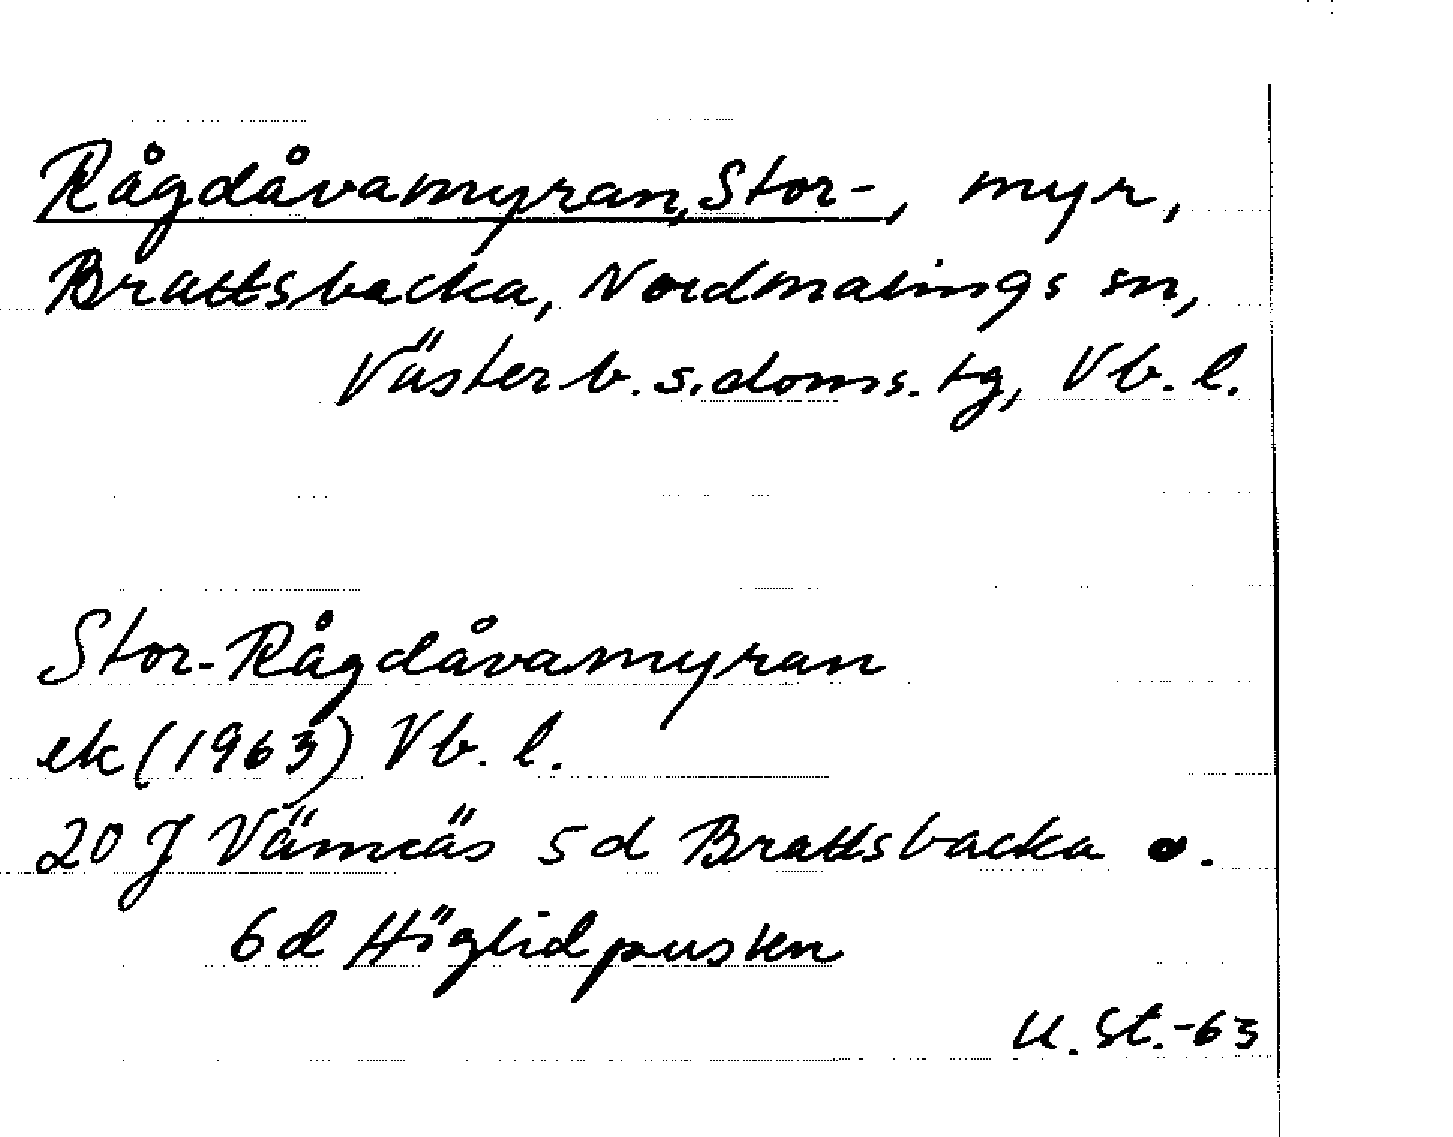 Rågdåvamyran, Stor-, myr,
Brattsbacka, Nordmalings sn,
Västerb. s. doms. tg, Vb. l.
Stor-Rågdåvamyran
ek (1963) Vb. l.
20 J Vännäs 5 d Brattsbacka o.
6 d Höglidpusten
U. St. -63